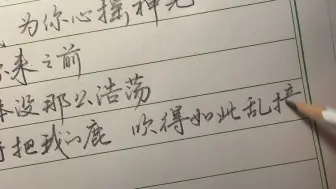 为你心摇神
来之前
没那么浩荡
把我的鹿 吹得如此乱撞